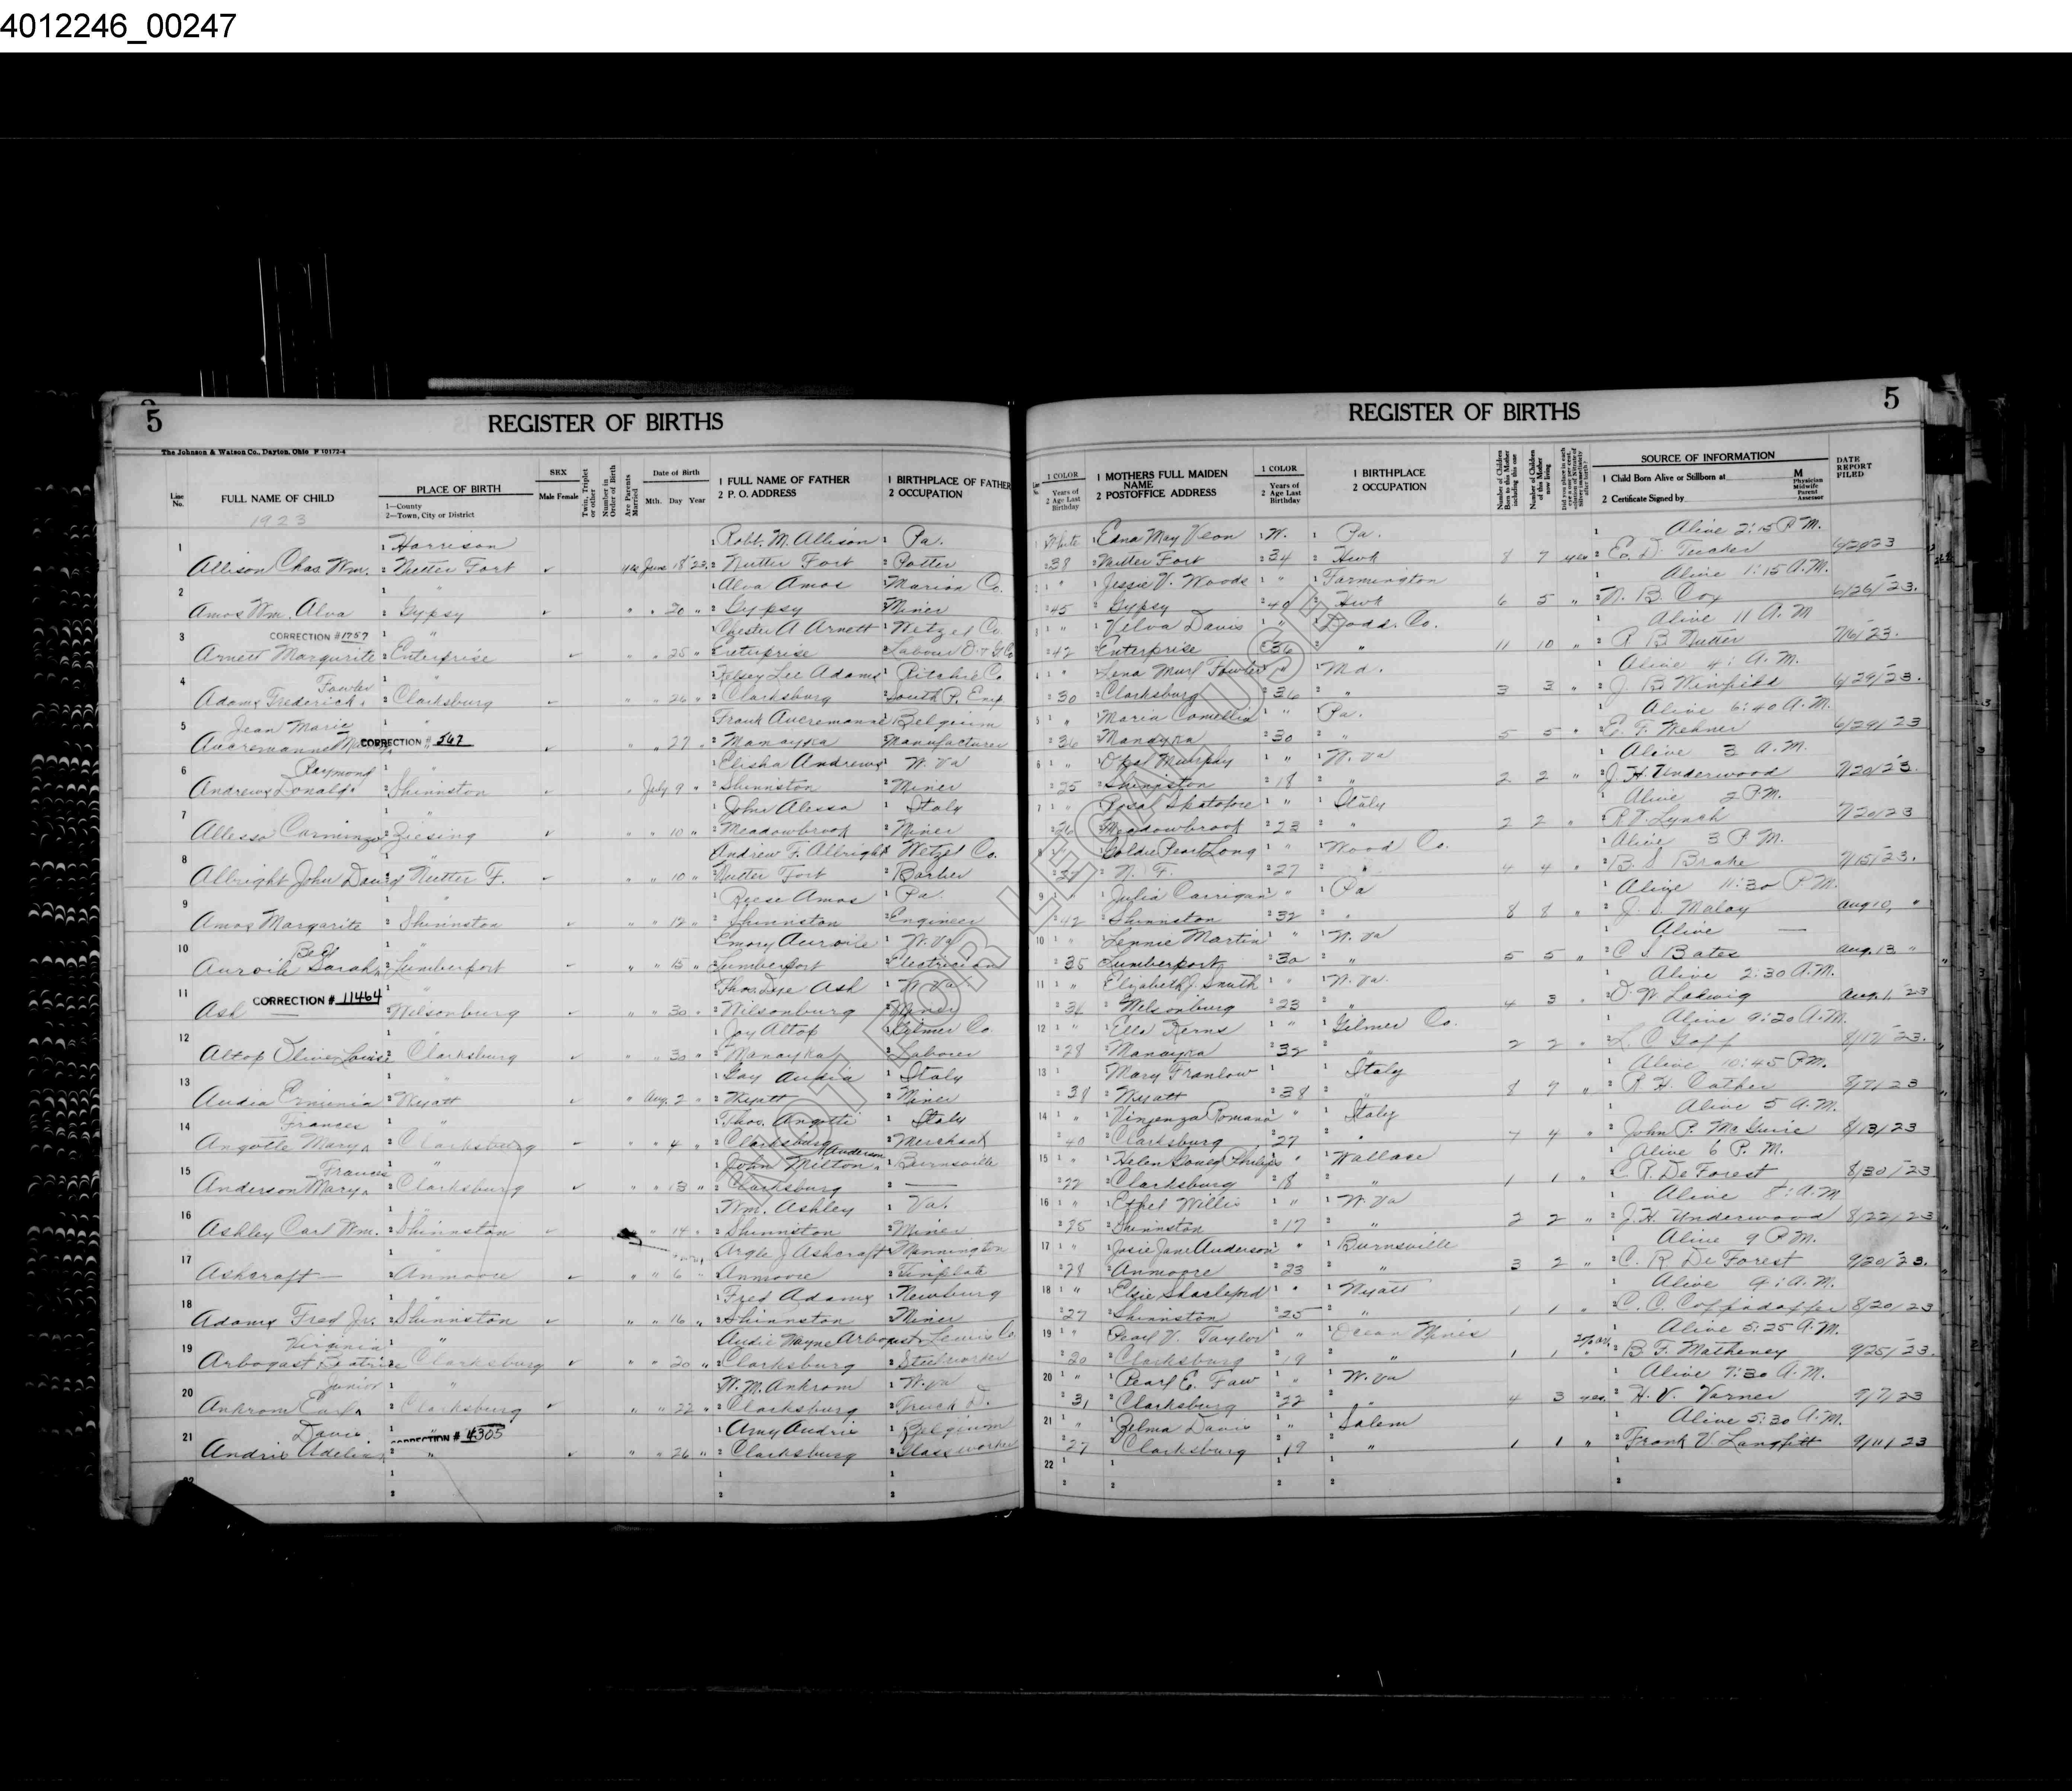 4012246_00247
5
REGISTER OF BIRTHS
The Johnson & Watson Co., Dayton, Ohio F 10172-4
Line No.
FULL NAME OF CHILD
1923
PLACE OF BIRTH
1—County
2—Town, City or District
SEX
Male Female
Twin, Triplet or other
Number in Order of Birth
Are Parents Married
Date of Birth
Mth. Day Year
1 FULL NAME OF FATHER
2 P. O. ADDRESS
1 BIRTHPLACE OF FATHER
2 OCCUPATION
1 Harrison 1 Robt. M. Allison 1 Pa.
1 Allison Chas. Wm. 2 Nutter Fort June 18 23 2 Nutter Fort 2 Potter
1 " 1 Alva Amos 1 Marion Co.
2 Amos Wm. Alva 2 Gypsy " " 20 " 2 Gypsy 2 Miner
CORRECTION # 1757 1 " 1 Chester A Arnett 1 Wetzel Co.
3 Arnett Margurite 2 Enterprise " " 25 " 2 Enterprise
Fowler 1 " 1 Kelsey Lee Adams 1 Ritchie Co
4 Adams Frederick 2 Clarksburg " " 26 " 2 Clarksburg
Jean Marie 1 " 1 Frank Aucremanne 1 Belgium
5 Aucremanne CORRECTION # 567 " " 27 " 2 Manayka 2 Manufacturer
Raymond 1 " 1 Elisha Andrews 1 W. Va
6 Andrews Donald 2 Shinnston " July 9 " 2 Shinnston 2 Miner
1 " 1 John Alessa 1 Italy
7 Allesso 2 Ziesing " " 10 " 2 Meadowbrook 2 Miner
1 " 1 Andrew F. Albright 1 Wetzel Co.
8 Albright John David 2 Nutter F. " " 10 " 2 Nutter Fort 2 Barber
1 " 1 Reese Amos 1 Pa.
9 Amos Margarite 2 Shinnston " " 12 " 2 Shinnston 2 Engineer
1 " 1 Emory 1 W. Va
10 Sarah 2 Lumberport " " 15 " 2 Lumberport 2 Electrician
CORRECTION # 11464 1 " 1 Thos. Dye Ash 1 W. Va
11 Ash — 2 Wilsonburg " " 30 " 2 Wilsonburg 2 Miner
1 " 1 Joy Altop 1 Gilmer Co.
12 Altop Louise 2 Clarksburg " " 30 " 2 Manayka 2 Laborer
1 " 1 Audia 1 Italy
13 Audia 2 Wyatt " Aug. 2 " 2 Wyatt 2 Miner
Frances 1 " 1 Thos. Angotti 1 Italy
14 Angotte Mary 2 Clarksburg " " 4 " 2 Clarksburg 2 Merchant
Frances 1 " 1 John Milton Anderson 1 Burnsville
15 Anderson Mary 2 Clarksburg " " 13 " 2 Clarksburg 2 —
1 " 1 Wm. Ashley 1 Va.
16 Ashley Carl Wm. 2 Shinnston " 14 " 2 Shinnston 2 Miner
1 " 1 Argle J Ashcraft 1 Mannington
17 Ashcraft — 2 Anmoore " " 6 " 2 Anmoore 2 Tinplate
1 " 1 Fred Adams 1 Newburg
18 Adams Fred Jr. 2 Shinnston " " 16 " 2 Shinnston 2 Miner
Virginia 1 " 1 Audie Wayne Arbogast 1 Lewis Co.
19 Arbogast Beatrice 2 Clarksburg " " 20 " 2 Clarksburg 2 Steelworker
Junior 1 " 1 W. M. Ankrom 1 W. Va
20 Ankrom Earl 2 Clarksburg " " 22 " 2 Clarksburg 2 Truck D.
Davis 1 " CORRECTION # 4305 1 Amy Andris 1 Belgium
21 Andris 2 " " " 26 " 2 Clarksburg 2 Glassworker
5
REGISTER OF BIRTHS
1 COLOR
2 Years of Age Last Birthday
1 MOTHERS FULL MAIDEN NAME
2 POSTOFFICE ADDRESS
1 COLOR
Years of
2 Age Last Birthday
1 BIRTHPLACE
2 OCCUPATION
Number of Children Born to this Mother including this one
Number of Children of this Mother now living
SOURCE OF INFORMATION
1 Child Born Alive or Stillborn at
2 Certificate Signed by
M
Physician
Midwife
Parent
Assessor
DATE REPORT FILED
1 White 1 Edna May Veon 1 W. 1 Pa. 1 Alive 2:15 P.M.
2 38 2 Nutter Fort 2 34 2 Hswk 8 7 yes 2 E. D. Tucker
2 1 " 1 Jessie V. Woods 1 " 1 Farmington 1 Alive 1:15 A.M.
2 45 2 Gypsy 2 40 2 Hswk 6 5 " 2 B. Cox 6/26/23.
3 1 " 1 Velva Davis 1 " 1 Dodd. Co. 1 Alive 11 A.M
2 42 2 Enterprise 2 36 2 " 11 10 " 2 7/6/23.
4 1 " 1 Lena Murl Fowler 1 " 1 Md. 1 Alive 4: A.M.
2 30 2 Clarksburg 2 36 2 " 3 3 " 2 J. B. Winfield 6/29/23.
5 1 " 1 Maria 1 " 1 Pa. 1 Alive 6:40 A.M.
2 36 2 Manayka 2 30 2 " 5 5 " 2 E. F. Wehner 6/29/23
6 1 " 1 Opal Murphy 1 " 1 W. Va 1 Alive 3 A.M.
2 25 2 Shinnston 2 18 2 " 2 2 " 2 J. H. Underwood 7/20/23.
7 1 " 1 Rosal 1 " 1 Italy 1 Alive 2 P.M.
2 26 2 Meadowbrook 2 23 2 " 2 2 " 2 Lynch 7/20/23
8 1 Goldie Pearl Long 1 " 1 Wood Co. 1 Alive 3 P.M.
2 N. F. 2 27 2 " 4 4 " 2 B. S Brake 7/15/23.
9 1 1 Julia Carrigan 1 " 1 Pa 1 Alive 11:30 P.M.
2 42 2 Shinnston 2 32 2 " 8 8 " 2 J. S. Malay Aug 10, "
10 1 " 1 Lennie Martin 1 " 1 W. Va 1 Alive —
2 35 2 Lumberport 2 30 2 " 5 5 " 2 C. S. Bates Aug. 13 "
11 1 " 1 Elizabeth J. Smith 1 " 1 W. Va. 1 Alive 2:30 A.M.
2 36 2 Wilsonburg 2 23 2 " 4 3 " 2 D. W. Aug. 1, 23
12 1 " 1 Ella Kerns 1 " 1 Gilmer Co. 1 Alive 9:20 A.M.
2 28 2 Manayka 2 32 2 " 2 2 " 2 L. C Goff 8/17/23.
13 1 1 Mary Franlow 1 1 Italy 1 Alive 10:45 P.M.
2 38 2 Wyatt 2 38 2 " 8 7 " 2 R H. Cather 8/7/23
14 1 " 1 Vinzenza Romano 1 " 1 Italy 1 Alive 5 A.M.
2 40 2 Clarksburg 2 27 2 " 4 " 2 John P. McGuire 8/13/23
15 1 " 1 Helen 1 " 1 Wallace 1 Alive 6 P.M.
2 22 2 Clarksburg 2 18 2 " 1 1 " 2 C. R. De Forest 8/30/23
16 1 " 1 Ethel Willis 1 " 1 W. Va 1 Alive 8: A.M
2 25 2 Shinnston 2 17 2 " 2 2 " 2 J. H. Underwood 8/22/23
17 1 " 1 Josie Jane Anderson 1 " 1 Burnsville 1 Alive 9 P.M.
2 28 2 Anmoore 2 23 2 " 3 2 " 2 C. R De Forest 9/20/23.
18 1 " 1 Elsie 1 " 1 Wyatt 1 Alive 9: A.M.
2 27 2 Shinnston 2 25 2 " 1 1 " 2 C. C. Coffindaffer 8/20/23
19 1 " 1 Pearl V. Taylor 1 " 1 Ocean Mines 1 Alive 5:25 A.M.
2 20 2 Clarksburg 2 19 2 " 1 1 2 B. F. Matheney 9/25/23.
20 1 " 1 Pearl E. Faw 1 " 1 W. Va 1 Alive 7:30 A.M.
2 31 2 Clarksburg 2 22 2 " 4 3 yes. 2 H. V. Varner 9/7/23
21 1 " 1 Zelma Davis 1 " 1 Salem 1 Alive 5:30 A.M.
2 27 2 Clarksburg 2 19 2 " 1 1 " 2 Frank V. Langfitt 9/11/23
22
NOT FOR LEGAL USE